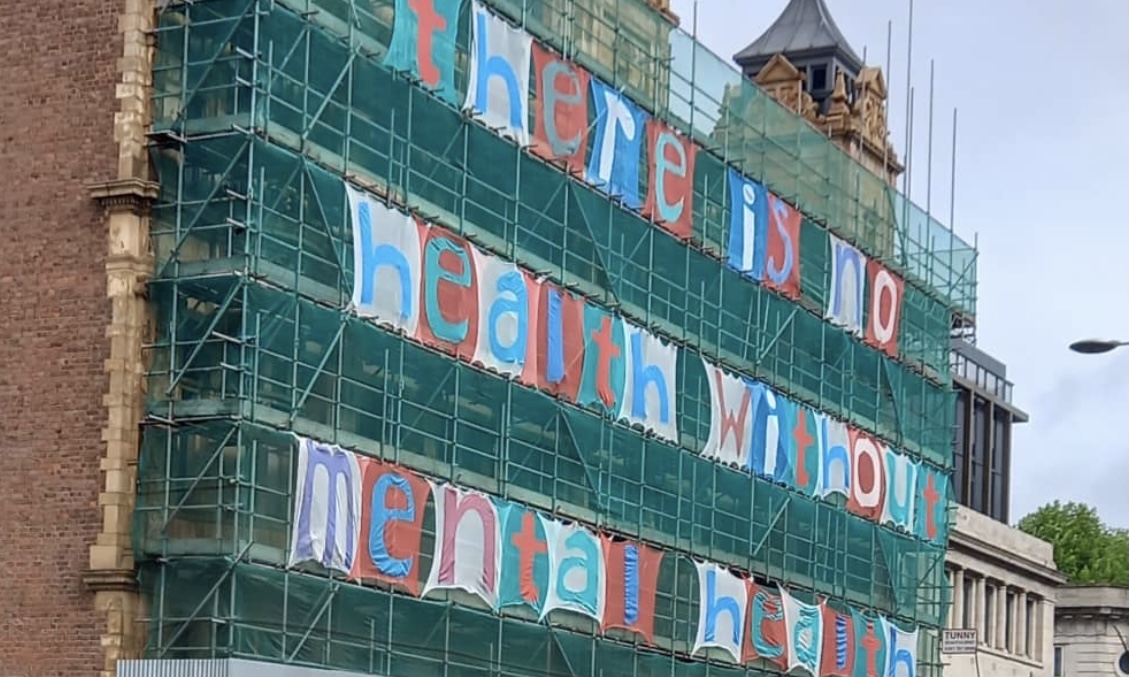 there is no
health without
mental health
TUNNY